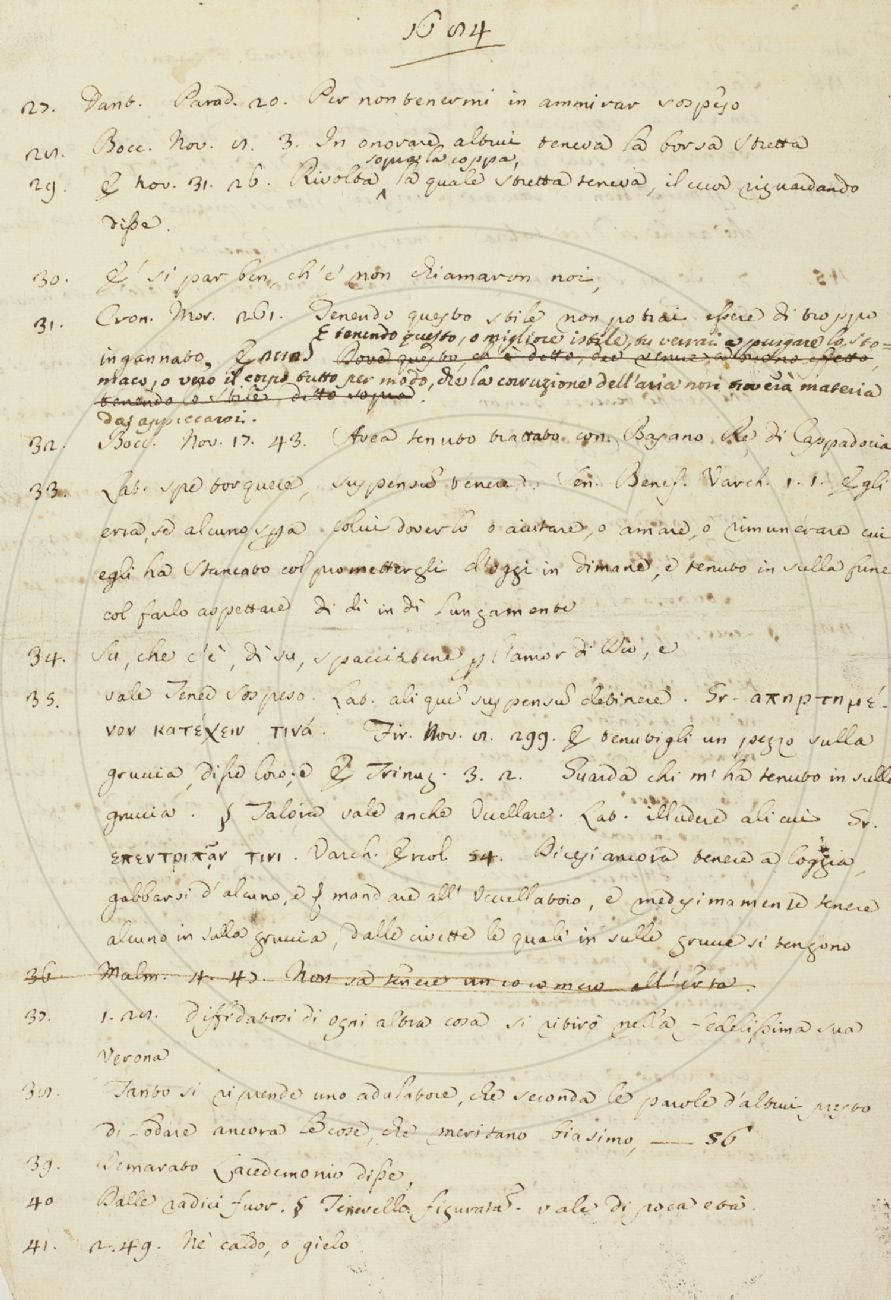 1684
27. Dant. Parad. 20. Per non tenermi in ammirar sospeso
28. Bocc. Nov. 8. 3. In onorare altrui teneva la borsa stretta
sopra la coppa,
29. E Nov. 31. 26. Rivolta la quale stretta teneva, il cuor riguardando
disse.
30. E' si par ben, ch'e' non chiamaron noi,
31. Cron. Mor. 261. Tenendo questo stile non potrai essere di troppo
E tenendo questo, o migliore istile, tu verrai a purgare lo sto=
ingannato, E
maco, o vero il corpo tutto per modo, che la corruzione dell'aria non troverà materia
tenendo lo stile, detto sopra.
da appiccarsi.
32. Bocc. Nov. 17. 43. Avea tenuto trattato con Basano Re di Cappadocia
33. Lat. spe torquere, suspensũ tenere. Sen. Benef. Varch. 1. 1. Egli
colui doverlo o aiutare, o amare, o rimunerare cui
egli ha stancato col promettergli d'oggi in dimane, e tenuto in sulla fune
col farlo aspettare di dì in dì lungamente
34. Su, che c'è, di su, l'amor di Dio, e
35. vale Tener sospeso. Lat. aliquẽ suspensũ detinere. Gr. απηρτημέ-
νον κατέχειν τινά. Fir. Nov. 8. 299. E tenutigli un pezzo sulla
gruccia, disse loro; e E Trinuz. 3. 2. Guarda chi m'ha tenuto in sulla
gruccia. § Talora vale anche Uccellare. Lat. illudere alicui Gr.
επεντριπᾷν τινι. Varch. Ercol. 54. Dicesi ancora tenere a loggia,
gabbarsi d'alcuno, e mandare all'Uccellatoio, e medesimamente tenere
alcuno in sulla gruccia, dalle civette le quali in sulle grucce si tengono
36 Malm. 4. 47. Non sa tenere un cocomero all'erta.
37. 1. 28. diffidatosi di ogni altra cosa si ritirò nella fedelissima sua
Verona
38. Tanto si riprende uno adulatore, che seconda le parole d'altrui presto
di lodare ancora le cose, che meritano biasimo, — 86
39. Demarato Lacedemonio disse,
40 Dalle radici fuor. § Tenerello figuratã. vale di poca età.
41. 2. 49. Nè caldo, o gielo